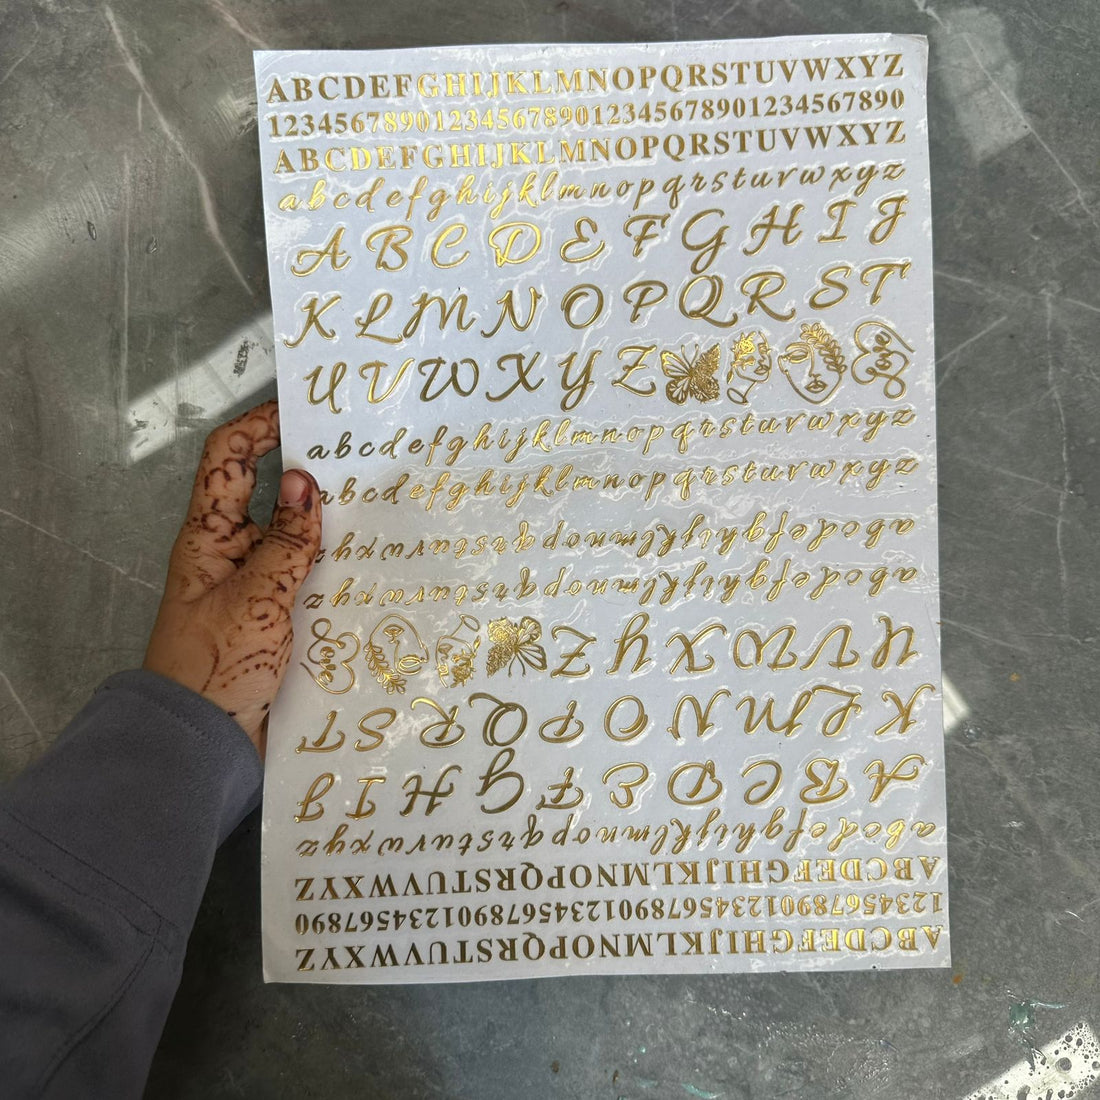 ABCDEFGHIJKLMNOPQRSTUVWXYZ
1234567890123456789012345678901234567890
ABCDEFGHIJKLMNOPQRSTUVWXYZ
abcdefghijklmnopqrstuvwxyz
ABCDEFGHIJ
KLMNOPQRST
UVWXYZ Love
abcdefghijklmnopqrstuvwxyz
abcdefghijklmnopqrstuvwxyz
abcdefghijklmnopqrstuvwxyz
abcdefghijklmnopqrstuvwxyz
UVWXYZ Love
KLMNOPQRST
ABCDEFGHIJ
abcdefghijklmnopqrstuvwxyz
ABCDEFGHIJKLMNOPQRSTUVWXYZ
1234567890123456789012345678901234567890
ABCDEFGHIJKLMNOPQRSTUVWXYZ